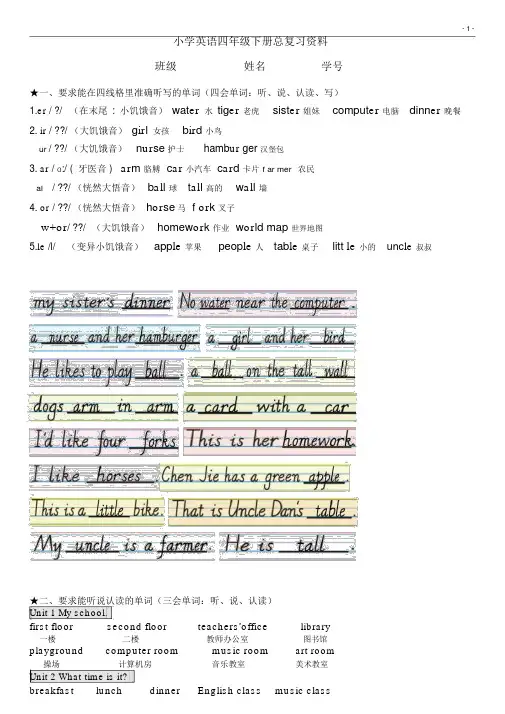 - 1 -
小学英语四年级下册总复习资料
班级 姓名 学号
★一、要求能在四线格里准确听写的单词（四会单词：听、说、认读、写）
1.er / ?/ （在末尾 : 小饥饿音） water 水 tiger 老虎 sister 姐妹 computer 电脑 dinner 晚餐
2. ir / ??/ （大饥饿音） girl 女孩 bird 小鸟
ur / ??/（大饥饿音） nurse 护士 hambur ger 汉堡包
3. ar / ɑ:/ ( 牙医音 ) arm 胳膊 car 小汽车 card 卡片 f ar mer 农民
al / ??/ （恍然大悟音） ball 球 tall 高的 wall 墙
4. or / ??/ （恍然大悟音） horse 马 f ork 叉子
w+or/ ??/ （大饥饿音） homework 作业 world map 世界地图
5.le /l/ （变异小饥饿音） apple 苹果 people 人 table 桌子 litt le 小的 uncle 叔叔
my sister's dinner No water near the computer .
a nurse and her hamburger a girl and her bird
He likes to play ball a ball on the tall wall
dogs arm in arm a card with a car
I'd like four forks This is her homework.
I like horses . Chen Jie has a green apple .
This is a little bike. That is Uncle Dan's table .
My uncle is a farmer. He is tall .
★二、要求能听说认读的单词（三会单词：听、说、认读）
Unit 1 My school.
first floor second floor teachers'office library
一楼 二楼 教师办公室 图书馆
playground computer room music room art room
操场 计算机房 音乐教室 美术教室
Unit 2 What time is it?
breakfast lunch dinner English class music class